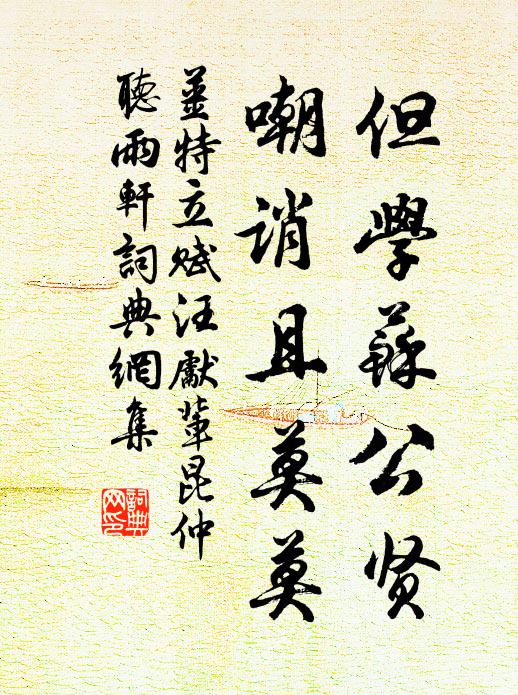 但學蘇公贤
嘲誚且莫莫
姜特立赋汪獻華昆仲
聽雨軒詞典網集
詞典
网印